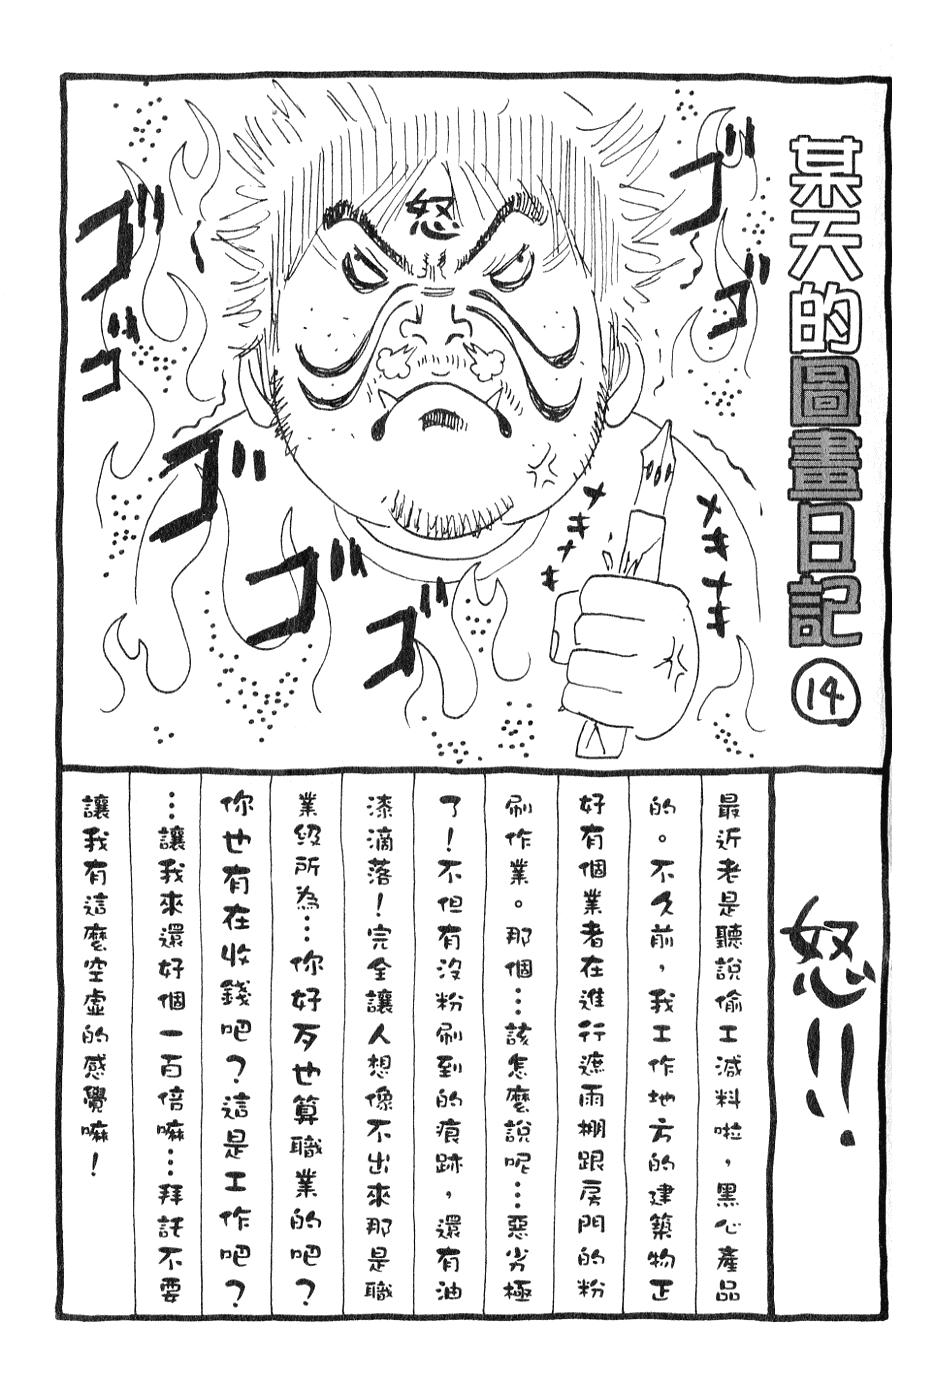 某天的圖畫日記
14
怒
ゴ
ゴ
ゴ
ゴ
ゴ
ゴ
ゴ
メキメキ
メキメキ
怒!!
最近老是聽說偷工減料啦,黑心產品
的。不久前,我工作地方的建築物正
好有個業者在進行遮雨棚跟房門的粉
刷作業。那個…該怎麼說呢…惡劣極
了!不但有沒粉刷到的痕跡,還有油
漆滴落!完全讓人想像不出來那是職
業級所為…你好歹也算職業的吧?
你也有在收錢吧?這是工作吧?
…讓我來還好個一百倍嘛…拜託不要
讓我有這麼空虛的感覺嘛!